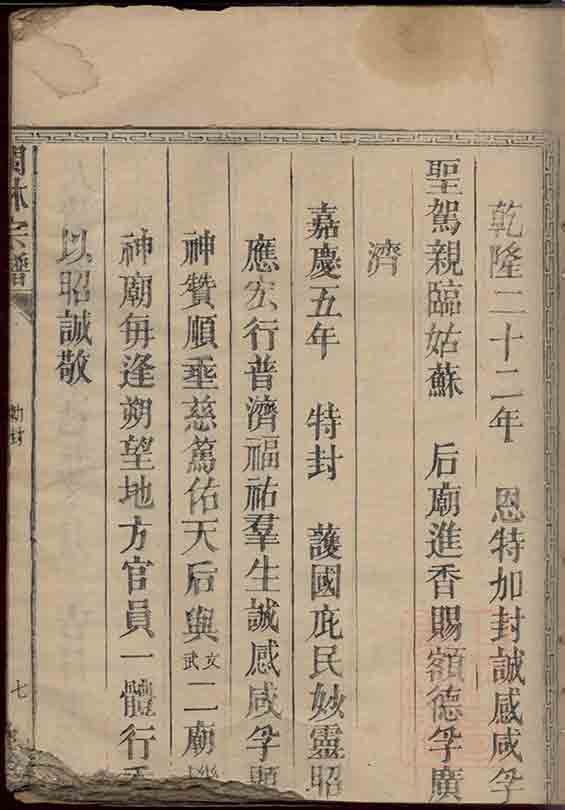 乾隆二十二年　恩特加封誠感咸孚
聖駕親臨姑蘇　后廟進香賜額德孚廣
濟
嘉慶五年　特封　護國庇民妙靈昭
應宏行普濟福祐羣生誠感咸孚顯
神贊順垂慈篤佑天后與文武二廟
神廟每逢朔望地方官員一體行香
以昭誠敬
林宗譜
勅封
七